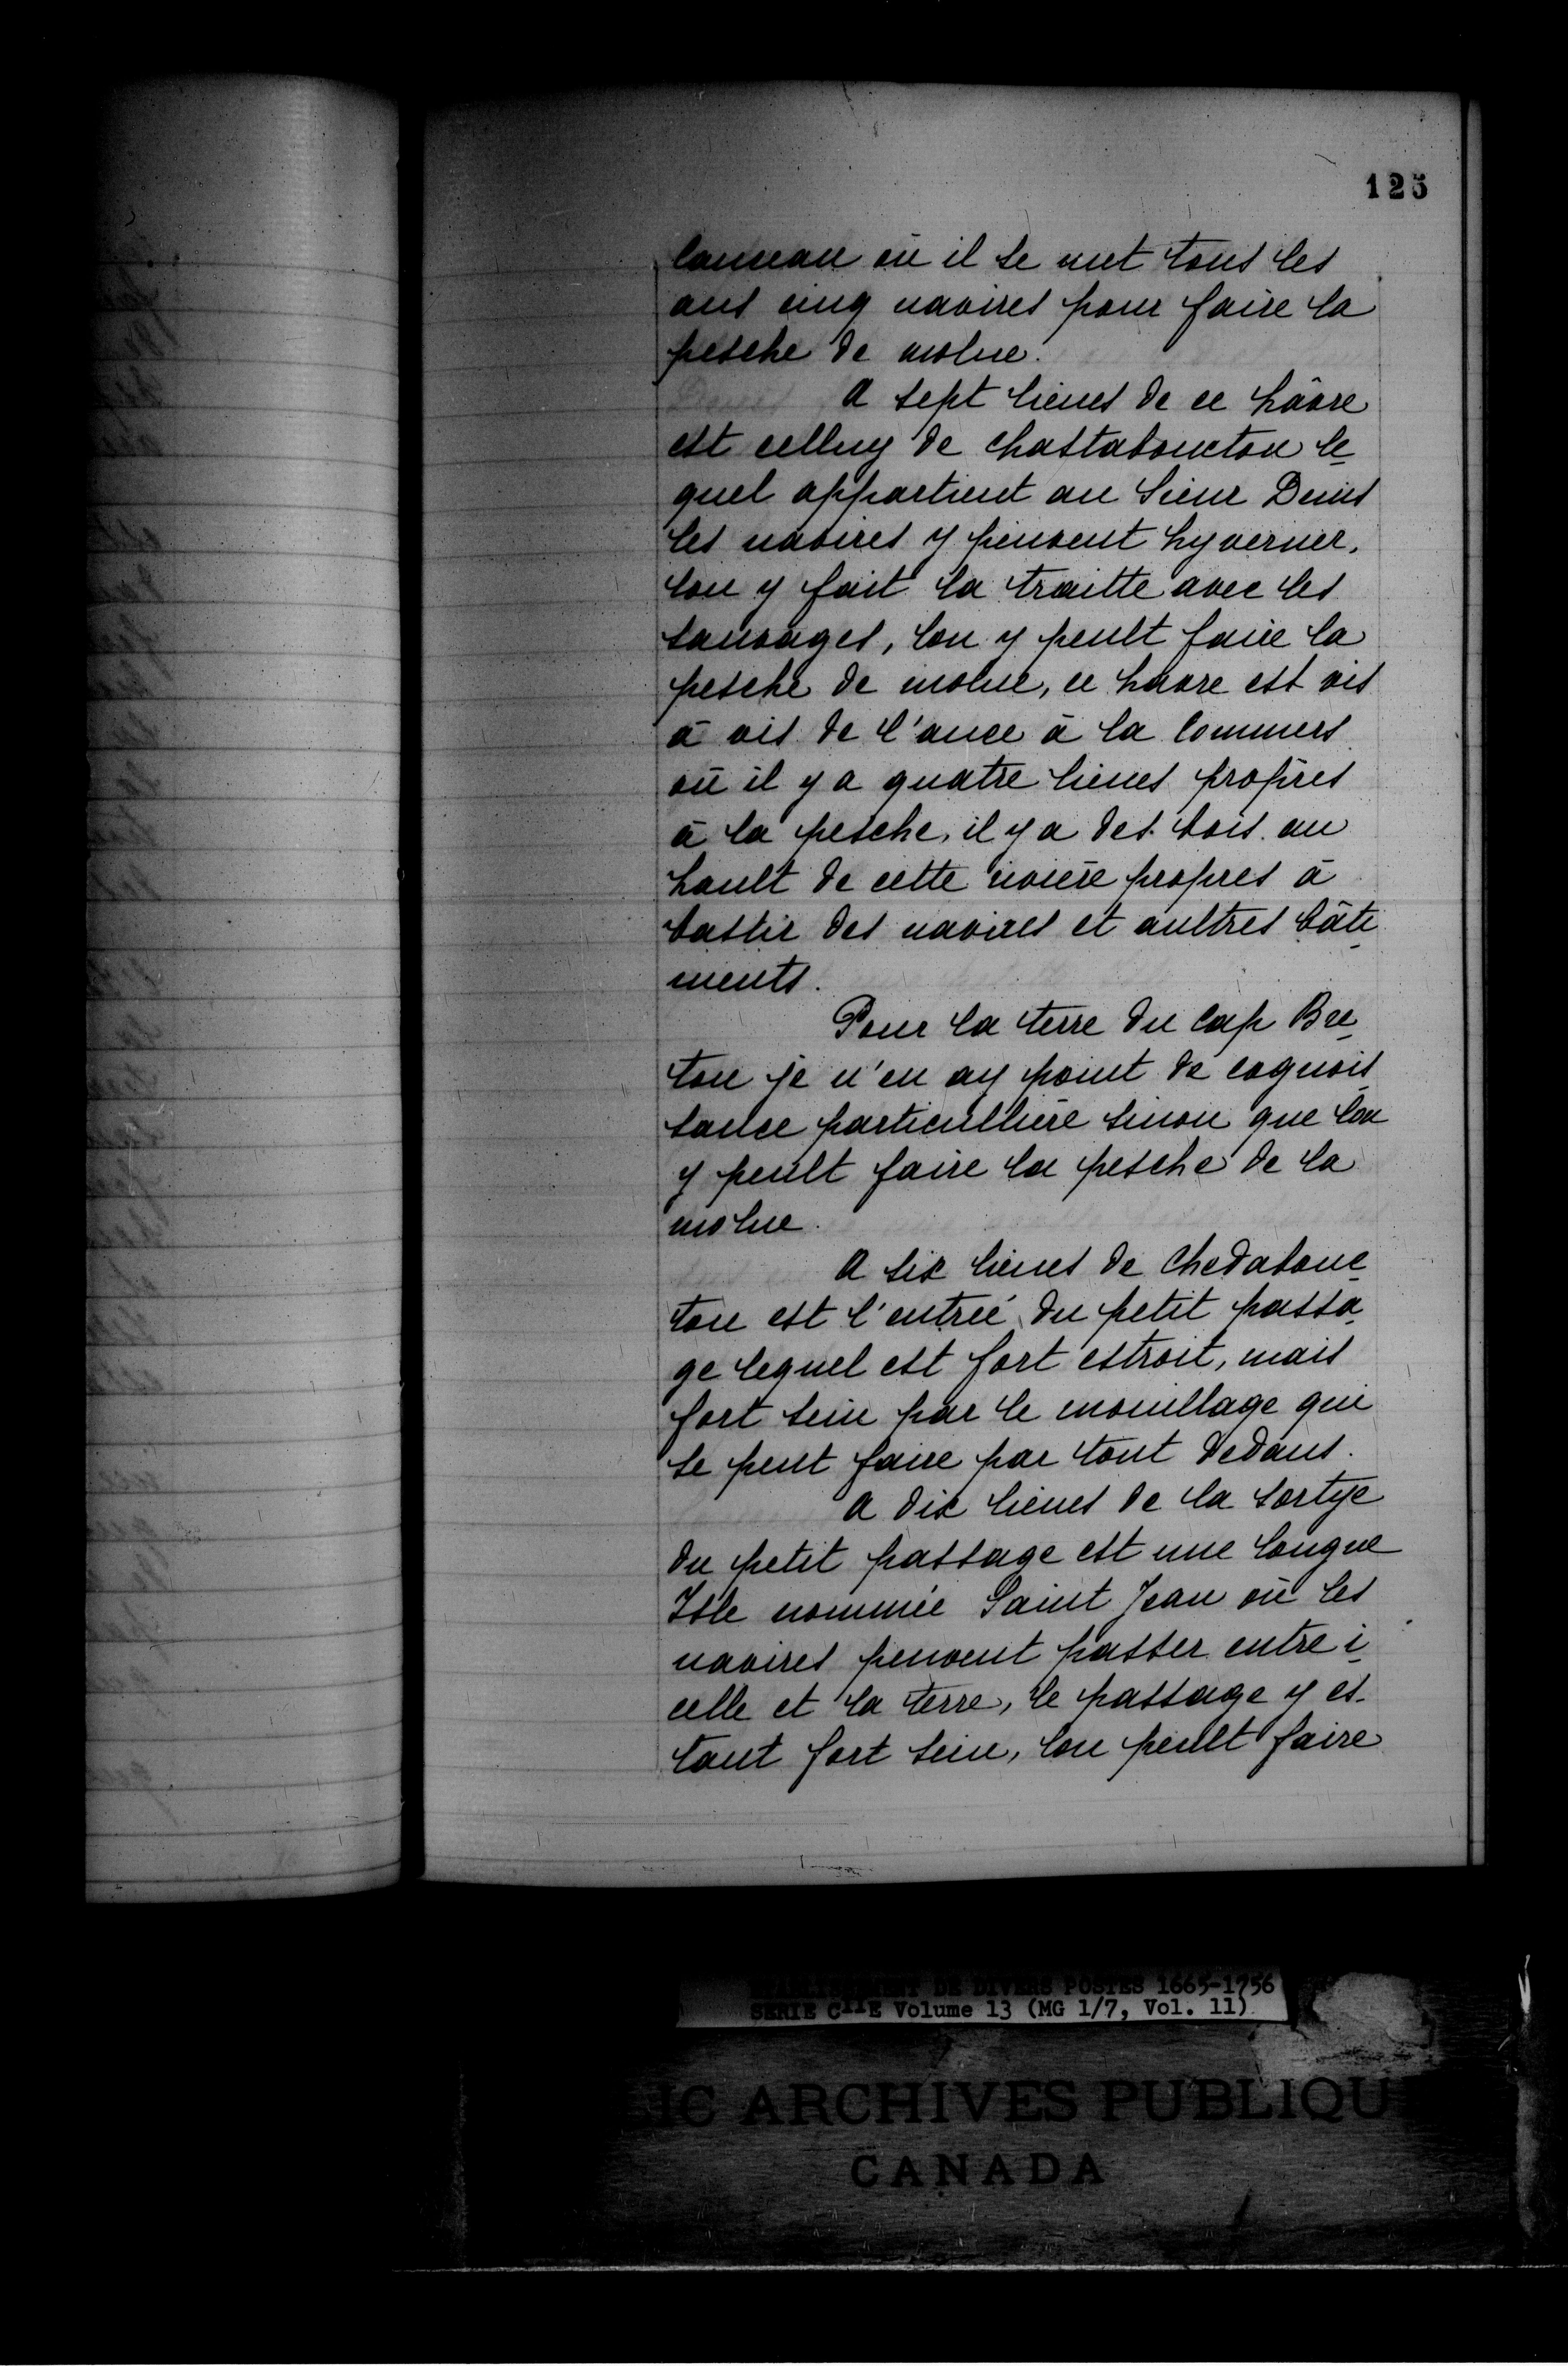 125
Canseau où il se met tous les
ans cinq navires pour faire la
pesche de molue.
A sept lieues de ce hâvre
est celluy de Chastabouctou le-
quel appartient au Sieur Denis
les navires y peuvent hyverner,
lon y fait la traitte avec les
sauvages, lon y peult faire la
pesche de molue, ce havre est vis
à vis de l'ance à la Commers
où il y a quatre lieues propres
à la pesche, il y a des bois au
hault de cette rivière propres à
bastir des navires et aultres bâti-
ments.
Pour la terre du Cap Bre-
ton je n'en ay point de cognois-
sance particullière sinon que lon
y peult faire la pesche de la
molue.
A six lieues de Chedabouc-
tou est l'entrée du petit passa-
ge lequel est fort estroit, mais
fort sein par le mouillage qui
se peut faire par tout dedans.
A dix lieues de la sortye
du petit passage est une longue
Isle nommée Saint Jean où les
navires peuvent passer entre i-
celle et la terre, le passage y es-
tant fort sein, lon peult faire
DE DIVERS POSTES 1665-1756
SERIE C11E Volume 13 (MG 1/7, Vol. 11)
IC ARCHIVES PUBLIQU
CANADA